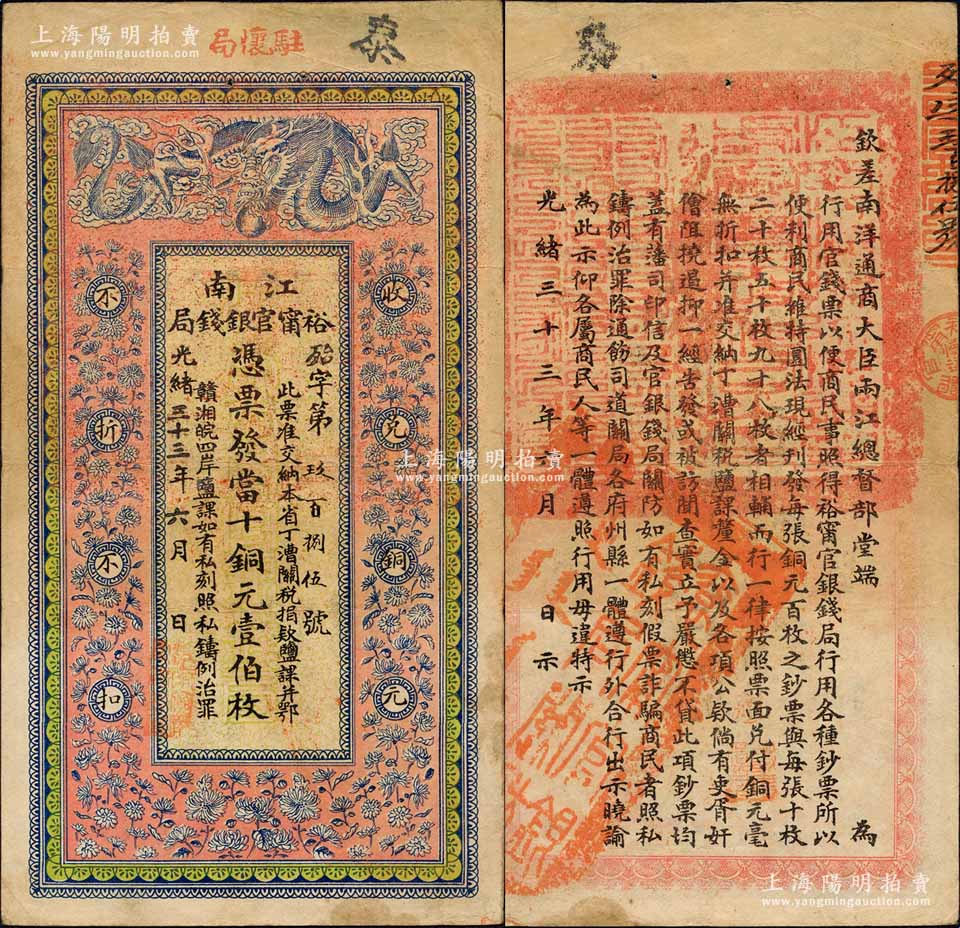 上海陽明拍賣
www.yangmingauction.com
駐懷局
泰
江南
裕甯官銀錢局
字第玖百捌伍號
憑票發當十銅元壹伯枚
此票准交納本省丁漕關稅捐款鹽課并鄂
贛湘皖四岸鹽課如有私刻照私鑄例治罪
光緒三十三年六月 日
收兌銅元
不折不扣
上海陽明拍賣
www.yangmingauction.com
欽差南洋通商大臣兩江總督部堂端 為
行用官錢票以便商民事照得裕甯官銀錢局行用各種鈔票所以
便利商民維持圜法現經刊發每張銅元百枚之鈔票與每張十枚
二十枚五十枚九十八枚者相輔而行一律按照票面兌付銅元毫
無折扣并准交納丁漕關稅鹽課釐金以及各項公款倘有吏胥奸
儈阻撓遏抑一經告發或被訪聞查實立予嚴懲不貸此項鈔票均
蓋有藩司印信及官銀錢局關防如有私刻假票詐騙商民者照私
鑄例治罪除通飭司道關局各府州縣一體遵行外合行出示曉諭
為此示仰各屬商民人等一體遵照行用毋違特示
光緒三十三年六月 日示
上海陽明拍賣
www.yangmingauction.com